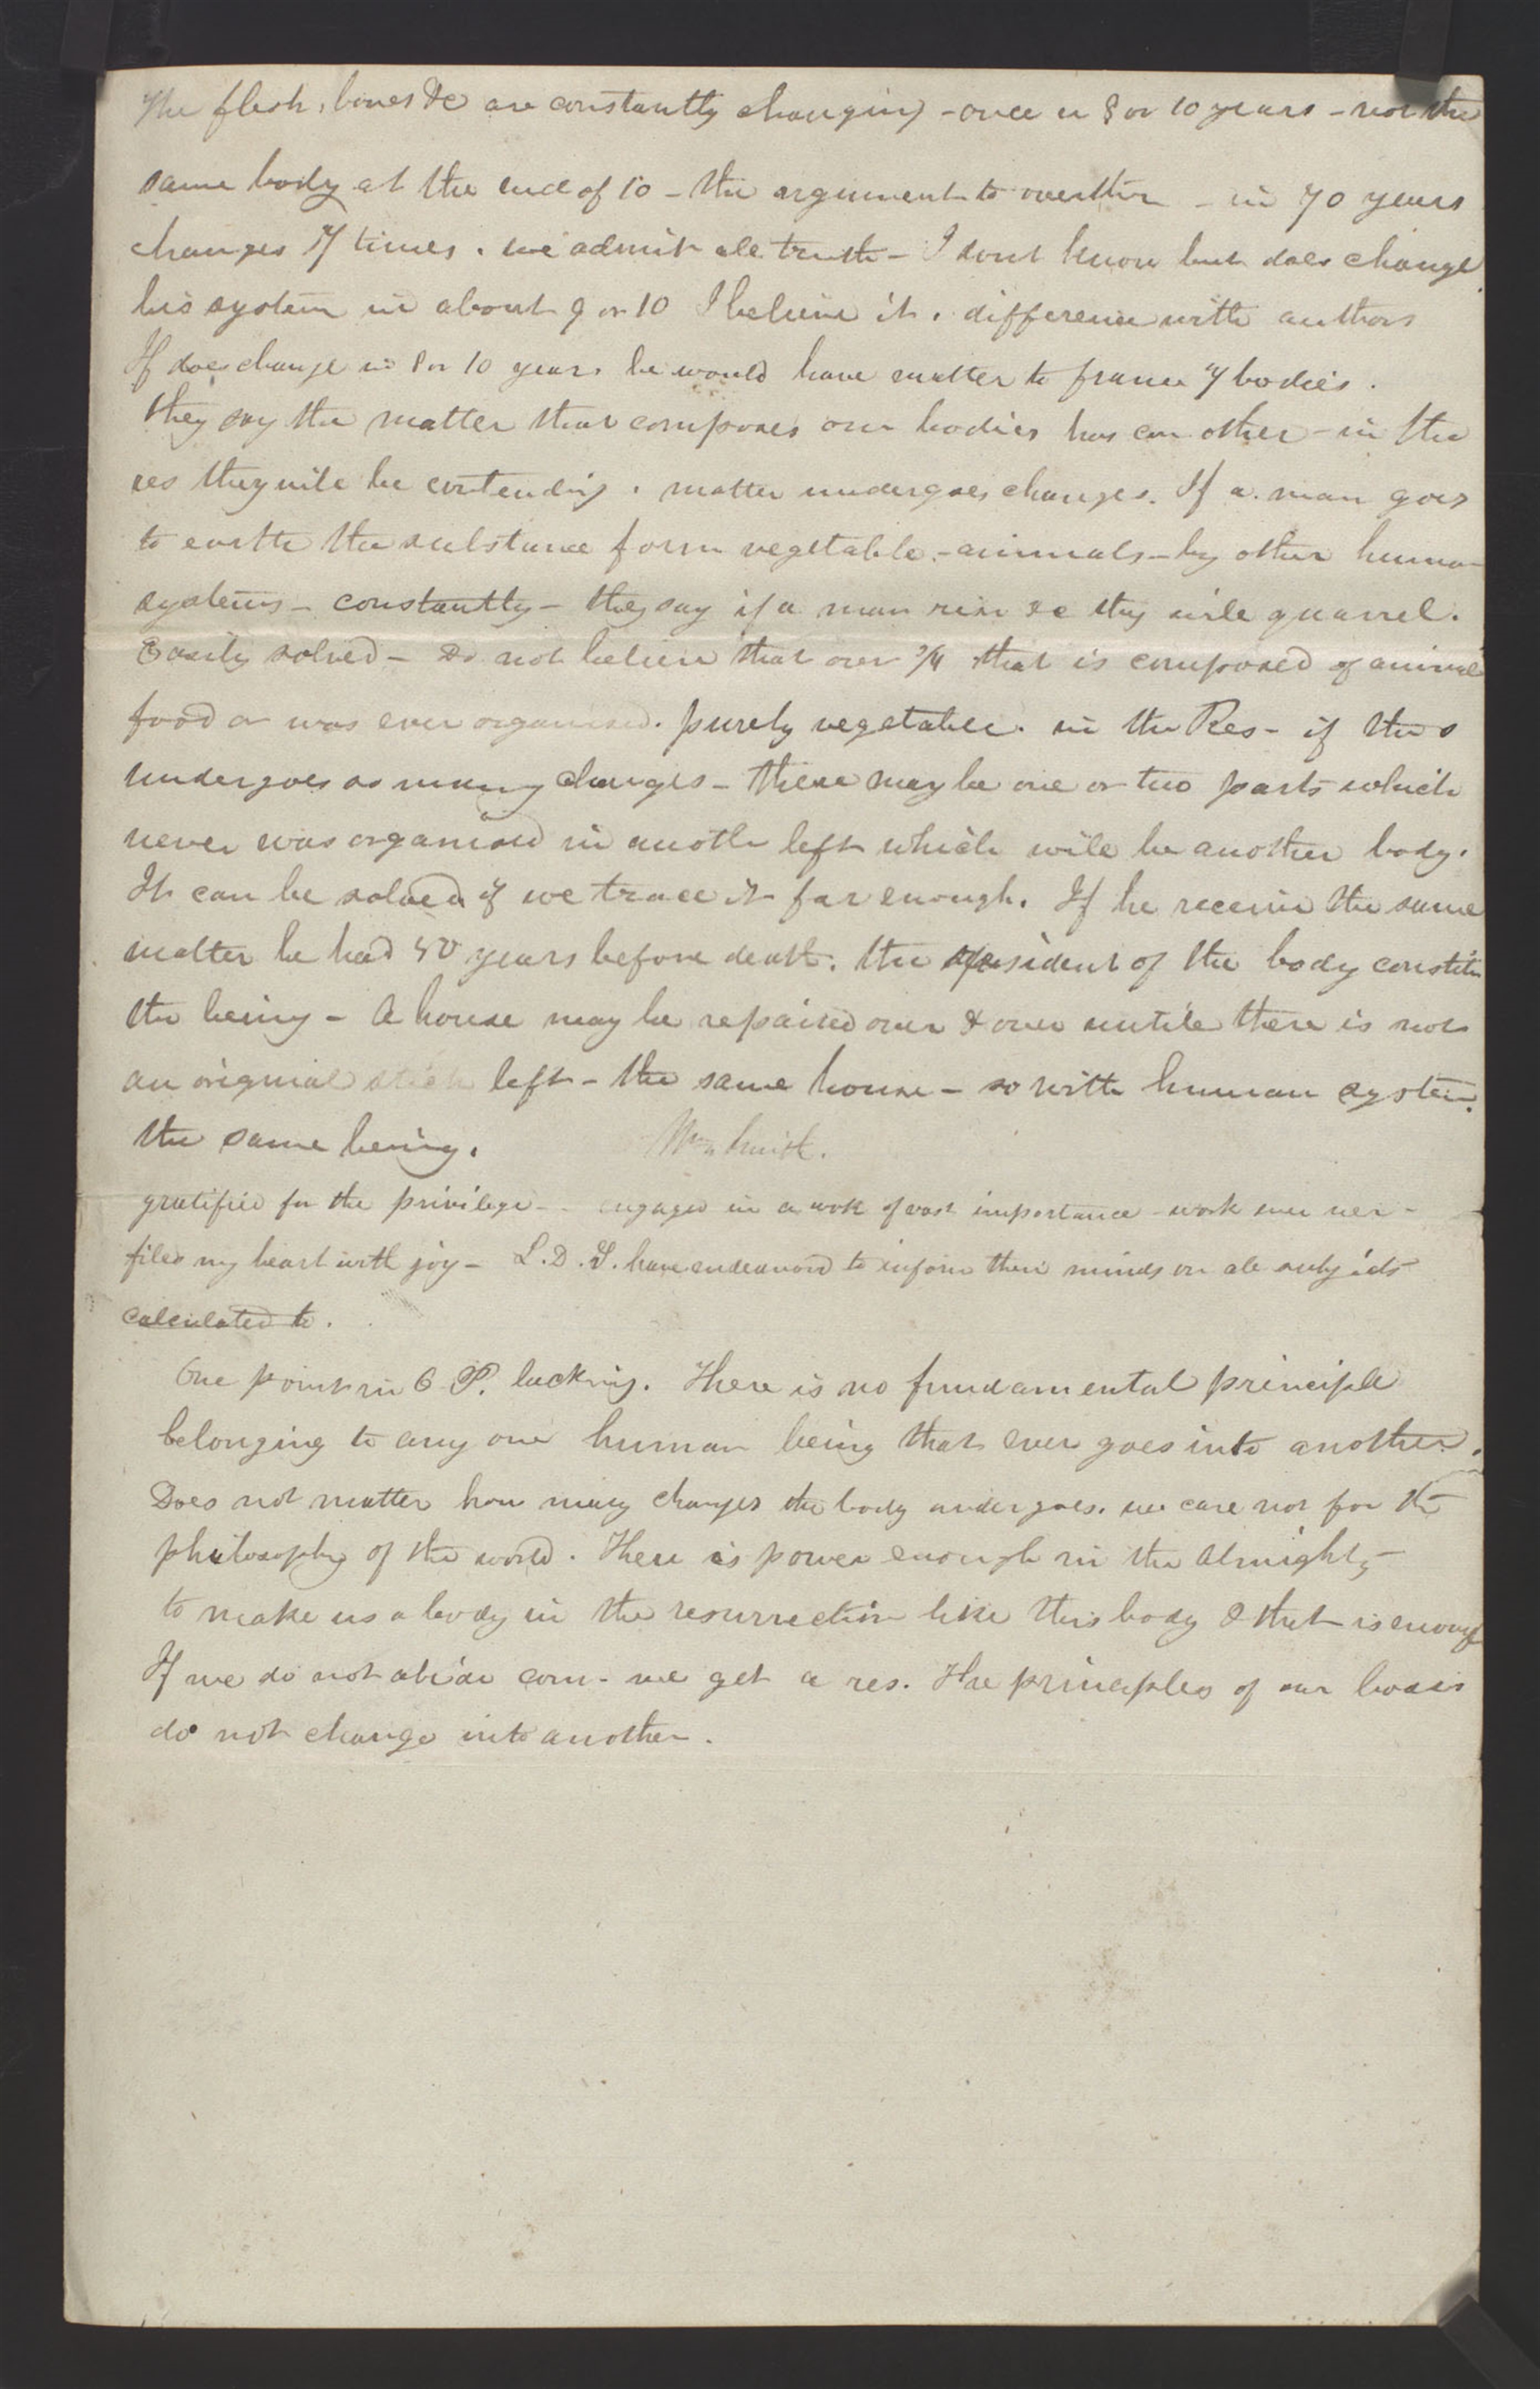 The flesh, bones &c are constantly changing - once in 8 or 10 years - not the
same body at the end of 10 - the argument to overthr - in 70 years
changes 7 times. we admit all truth - I dont know but does change
his system in about 9 or 10 I believe it. difference with authors
If does change in 8 or 10 years he would have matter to frame 7 bodies.
they say the matter that composes our bodies has com other - in the
res they will be contending. matter undergoes changes. If a man goes
to earth the substance form vegetable - animals - by other human
systems - constantly - they say if a man rise &c they will quarrel.
Easily solved - Do not believe that over 3/4 that is composed of animal
food or was ever organised. purely vegetable. in the Res - if this
undergoes as many changes - there may be one or two parts which
never was organised in anothr left which will be another body.
It can be solved if we trace it far enough. If he receive the same
matter he had 50 years before death. the resident of the body constitu
the being - A house may be repaired over & over untile there is not
an original stick left - the same house - so with human system.
the same being. Wm Smith.
gratified for the privilege - engaged in a work of vast importance - work ever ner -
filed my heart with joy - L. D. S. have endeavord to inform their minds on all subjects
calculated to.
One point in O. P. lacking. There is no fundamental principle
belonging to any one human being that ever goes into another.
Does not matter how many changes the body undergoes. we care not for the
philosophy of the world. There is power enough in the Almighty
to make us a body in the resurrection like this body & that is enough
If we do not abide com - we get a res. The principles of our bodies
do not change into another.